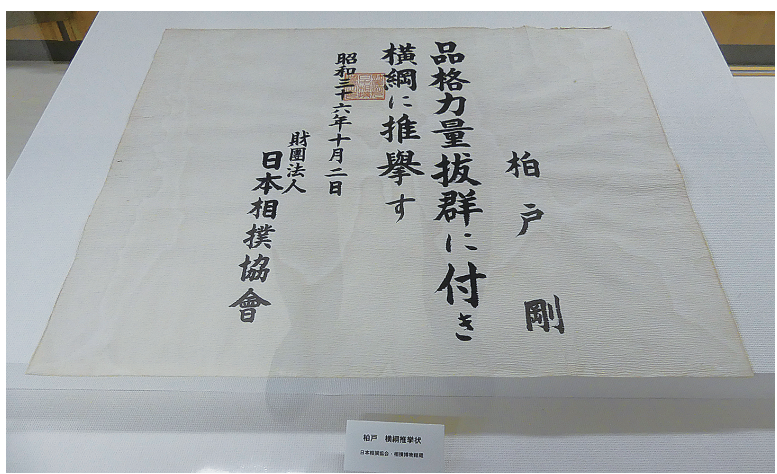 柏戸 剛
品格力量抜群に付き
横綱に推擧す
昭和三十六年十月二日
財團法人
日本相撲協會
柏戸 横綱推挙状
日本相撲協会・相撲博物館蔵